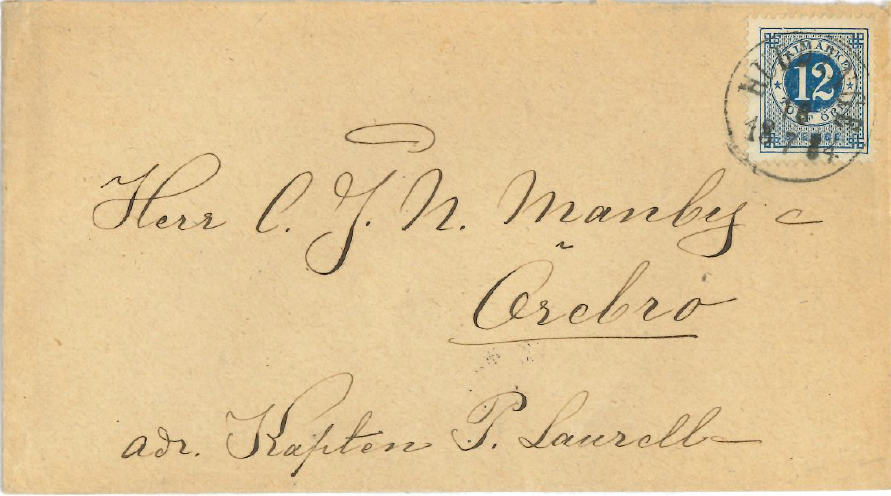 FRIMÄRKE
12
TOLF ÖRE
SVERIGE
18
7
Herr C. J. N. Manby
Örebro
adr. Kapten P. Laurell